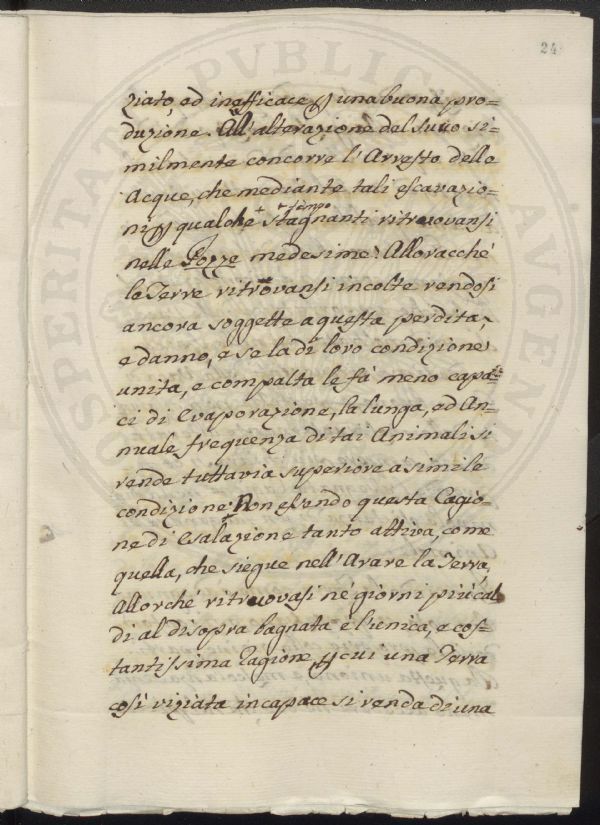 24
ziato, ed inefficace p una buona pro=
duzione. All'alterazione del Suco si=
milmente concorre l'Arresto delle
Acque, che mediante tali escavazio=
ni p qualche + stagnanti ritruovansi
+ tempo
nelle Pozze medesime. Alloracché
le Terre ritrovansi incolte rendosi
ancora soggette a questa perdita,
e danno, e se la di loro condizione
unita, e compatta le fà meno capa=
ci di Evaporazione, la lunga, ed An=
nuale frequenza di tai Animali si
rende tuttavia superiore à simile
condizione. Non essendo questa Cagio=
ne di Esalazione tanto attiva, come
quella, che siegue nell'Arare la Terra,
Allorché ritruovasi né giorni più cal
di al disopra bagnata è l'unica, e cos=
tantissima Ragione p cui una Terra
così viziata incapace si renda di una
PUBLICAE
AUGEN
PROSPERITATI